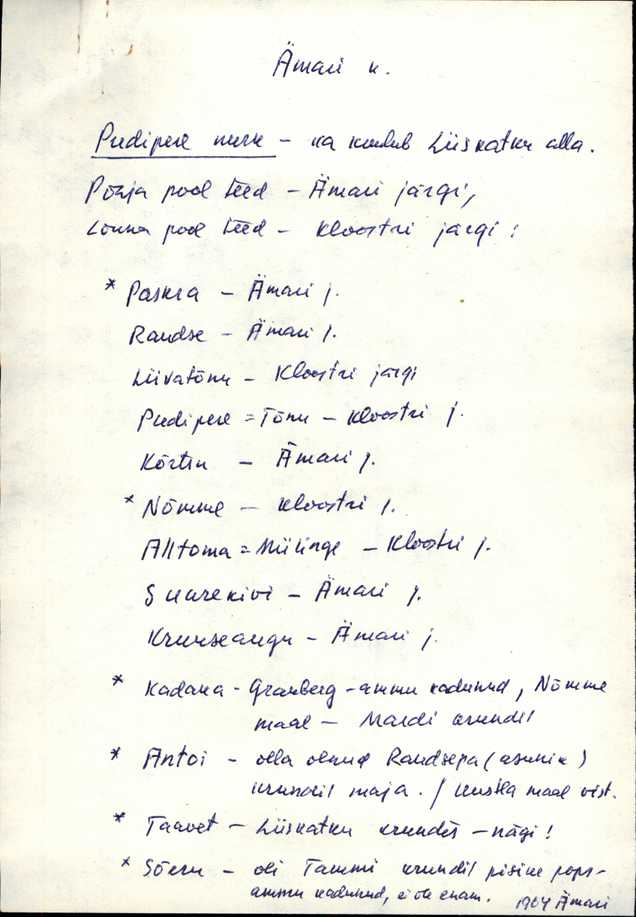 Ämari k.
Pudipere nurk - ka kuulub Liiskatku alla.
Põhja pool teed - Ämari järgi,
Lõuna pool teed - Kloostri järgi :
* Paskra - Ämari j.
Raudse - Ämari j.
Liivatõnu - Kloostri järgi
Pudipere = Tõnu - Kloostri j.
Kõrtsu - Ämari j.
* Nõmme - Kloostri j.
Alltoma = - Kloostri j.
Suurekivi - Ämari j.
Kruuseaugu - Ämari j.
* Kadaka - Granberg - ammu kadunud, Nõmme
maal - Mardi krundil
* Antoi - olla olnud Raudsepa (asunik)
krundil maja. / maal vist.
* Taavet - Liiskatku krundis - nägi!
* Sõeru - oli Tammi krundil pisike pops-
ammu kadunud, ei ole enam. 1964 Ämari